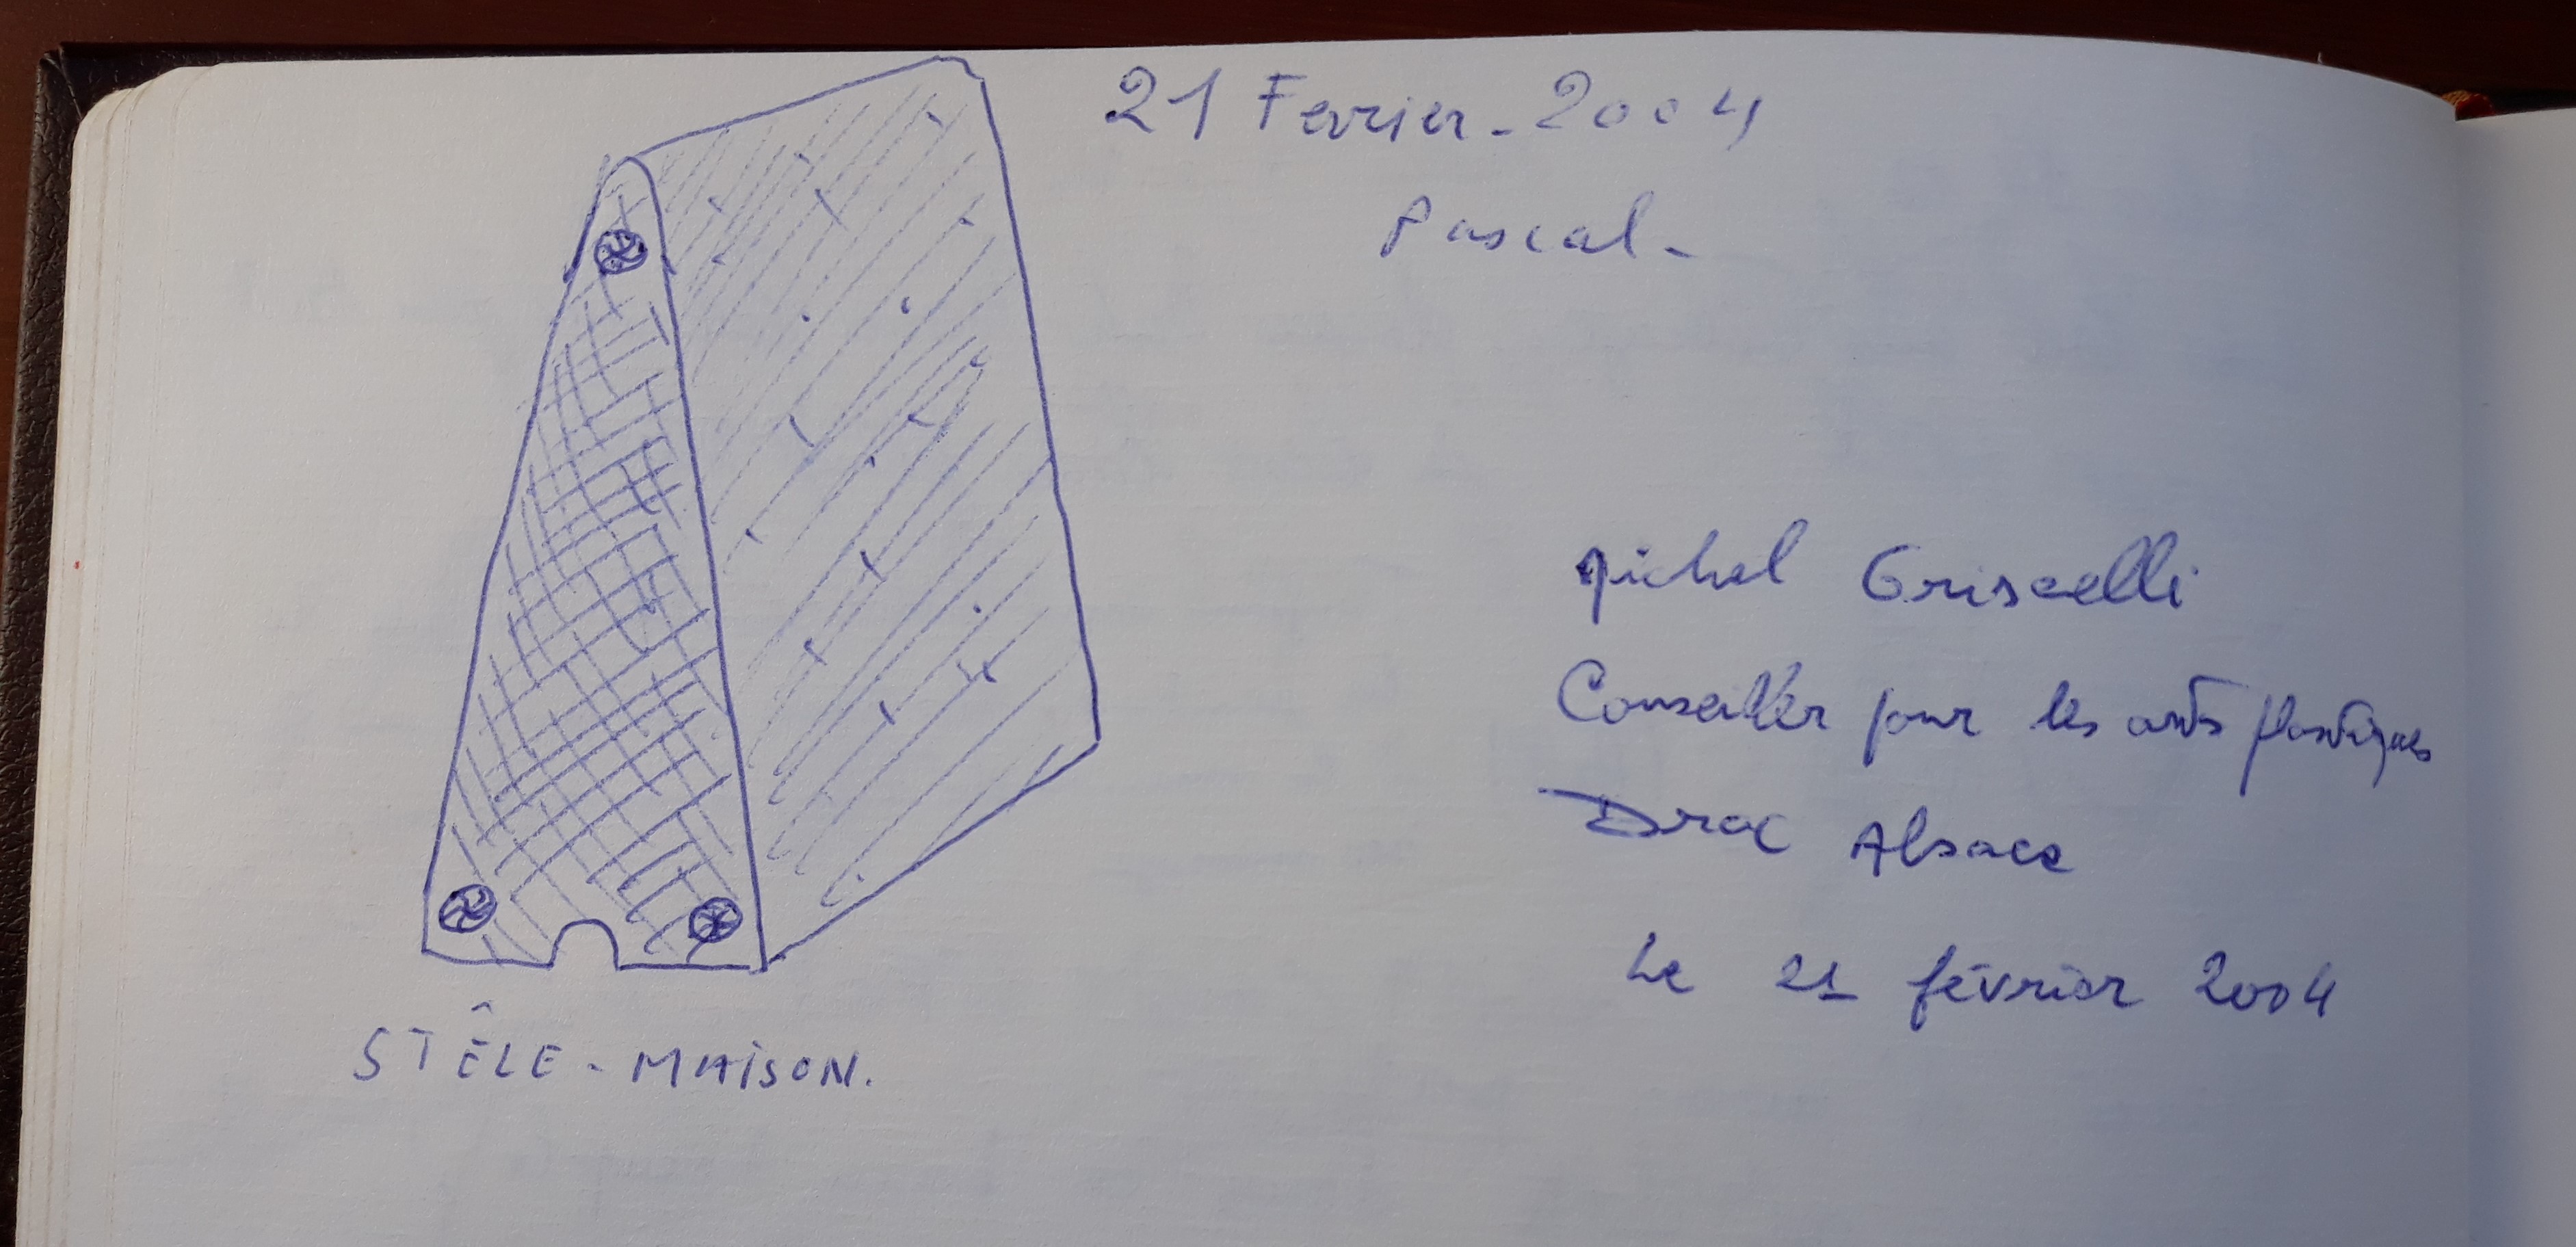 21 Fevrier - 2004
Pascal -
Michel Griscelli
Conseiller pour les arts plastiques
Drac Alsace
Le 21 février 2004
STÊLE - MAISON.